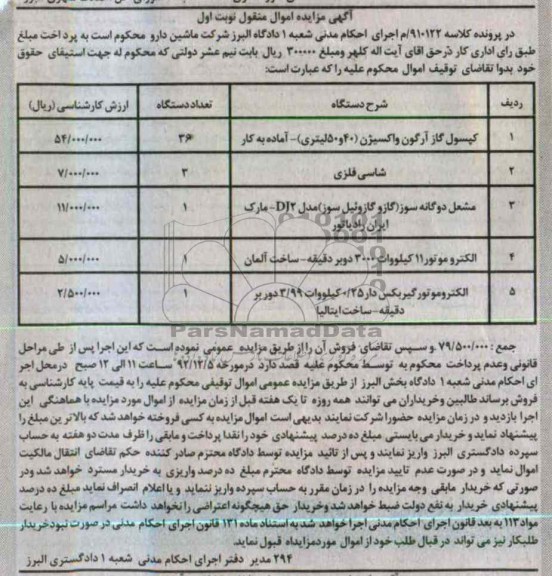 آگهی مزایده اموال منقول نوبت اول
در پرونده کلاسه ۹۱۰۱۲۲/م اجرای احکام مدنی شعبه ۱ دادگاه البرز شرکت ماشین دارو محکوم است به پرداخت مبلغ
طبق رای اداری کار درحق آقای آیت اله کلهر ومبلغ ۳۰۰۰۰۰ ریال بابت نیم عشر دولتی که محکوم له جهت استیفای حقوق
خود بدوا تقاضای توقیف اموال محکوم علیه را که عبارت است:
ردیف شرح دستگاه تعداد دستگاه ارزش کارشناسی (ریال)
۱ کپسول گاز آرگون واکسیژن (۴۰و۵۰لیتری)- آماده به کار ۳۶ ۵۴/۰۰۰/۰۰۰
۲ شاسی فلزی ۳ ۷/۰۰۰/۰۰۰
۳ مشعل دوگانه سوز(گازو گازوئیل سوز)مدل DJ۲- مارک ۱ ۱۱/۰۰۰/۰۰۰
ایران رادیاتور
۴ الکترو موتور ۱۱ کیلووات ۳۰۰۰ دوبر دقیقه- ساخت آلمان ۱ ۵/۰۰۰/۰۰۰
۵ الکتروموتورگیربکس دار ۰/۲۵ کیلووات ۳/۹۹ دور بر ۱ ۲/۵۰۰/۰۰۰
دقیقه- ساخت ایتالیا
ParsNamadData
جمع: ۷۹/۵۰۰/۰۰۰ و سپس تقاضای فروش آن را از طریق مزایده عمومی نموده است که این اجرا پس از طی مراحل
قانونی وعدم پرداخت محکوم به توسط محکوم علیه قصد دارد درمورخه ۹۲/۱۲/۵ ساعت ۱۱ الی ۱۲ صبح درمحل اجر
ای احکام مدنی شعبه ۱ دادگاه بخش البرز از طریق مزایده عمومی اموال توقیفی محکوم علیه را به قیمت پایه کارشناسی به
فروش برساند طالبین وخریداران می توانند همه روزه تا یک هفته قبل از زمان مزایده از اموال مورد مزایده با هماهنگی این
اجرا بازدید و در زمان مزایده حضورا شرکت نمایند بدیهی است اموال مزایده به کسی فروخته خواهد شد که بالاترین مبلغ را
پیشنهاد نماید و خریدار می بایستی مبلغ ده درصد پیشنهادی خود را نقدا پرداخت و مابقی را ظرف مدت دو هفته به حساب
سپرده دادگستری البرز واریز نمایند و پس از تائید مزایده توسط دادگاه محترم صادر کننده حکم تقاضای انتقال مالکیت
اموال نماید و در صورت عدم تایید مزایده توسط دادگاه محترم مبلغ ده درصد واریزی به خریدار مسترد خواهد شد ودر
صورتی که خریدار مابقی وجه مزایده را در زمان مقرر به حساب سپرده واریز ننماید و یا اعلام انصراف نماید مبلغ ده درصد
پیشنهادی خریدار به نفع دولت ضبط خواهد شد وخریدار حق هیچگونه اعتراضی را نخواهد داشت مراسم مزایده با رعایت
مواد ۱۱۳ به بعد قانون اجرای احکام مدنی اجرا خواهد شد به استناد ماده ۱۳۱ قانون اجرای احکام مدنی در صورت نبود خریدار
طلبکار نیز می تواند در قبال طلب خود از اموال موردمزایداه قبول نماید.
۲۹۴ مدیر دفتر اجرای احکام مدنی شعبه ۱ دادگستری البرز